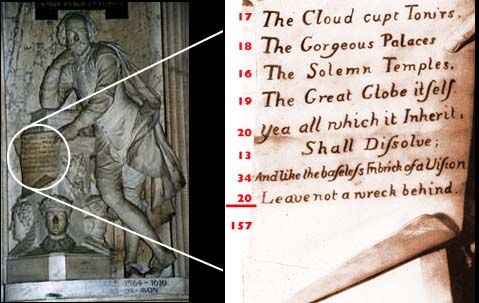 17 The Cloud cupt Tonirs,
18 The Gorgeous Palaces
16 The Solemn Temples,
19 The Great Globe itſelf
20 Yea all which it Inherit,
13 Shall Diſsolve;
34 And like the baſeleſs Fabrick of a Viſion
20 Leave not a wreck behind.
157
1564 - 1616
ON-AVON